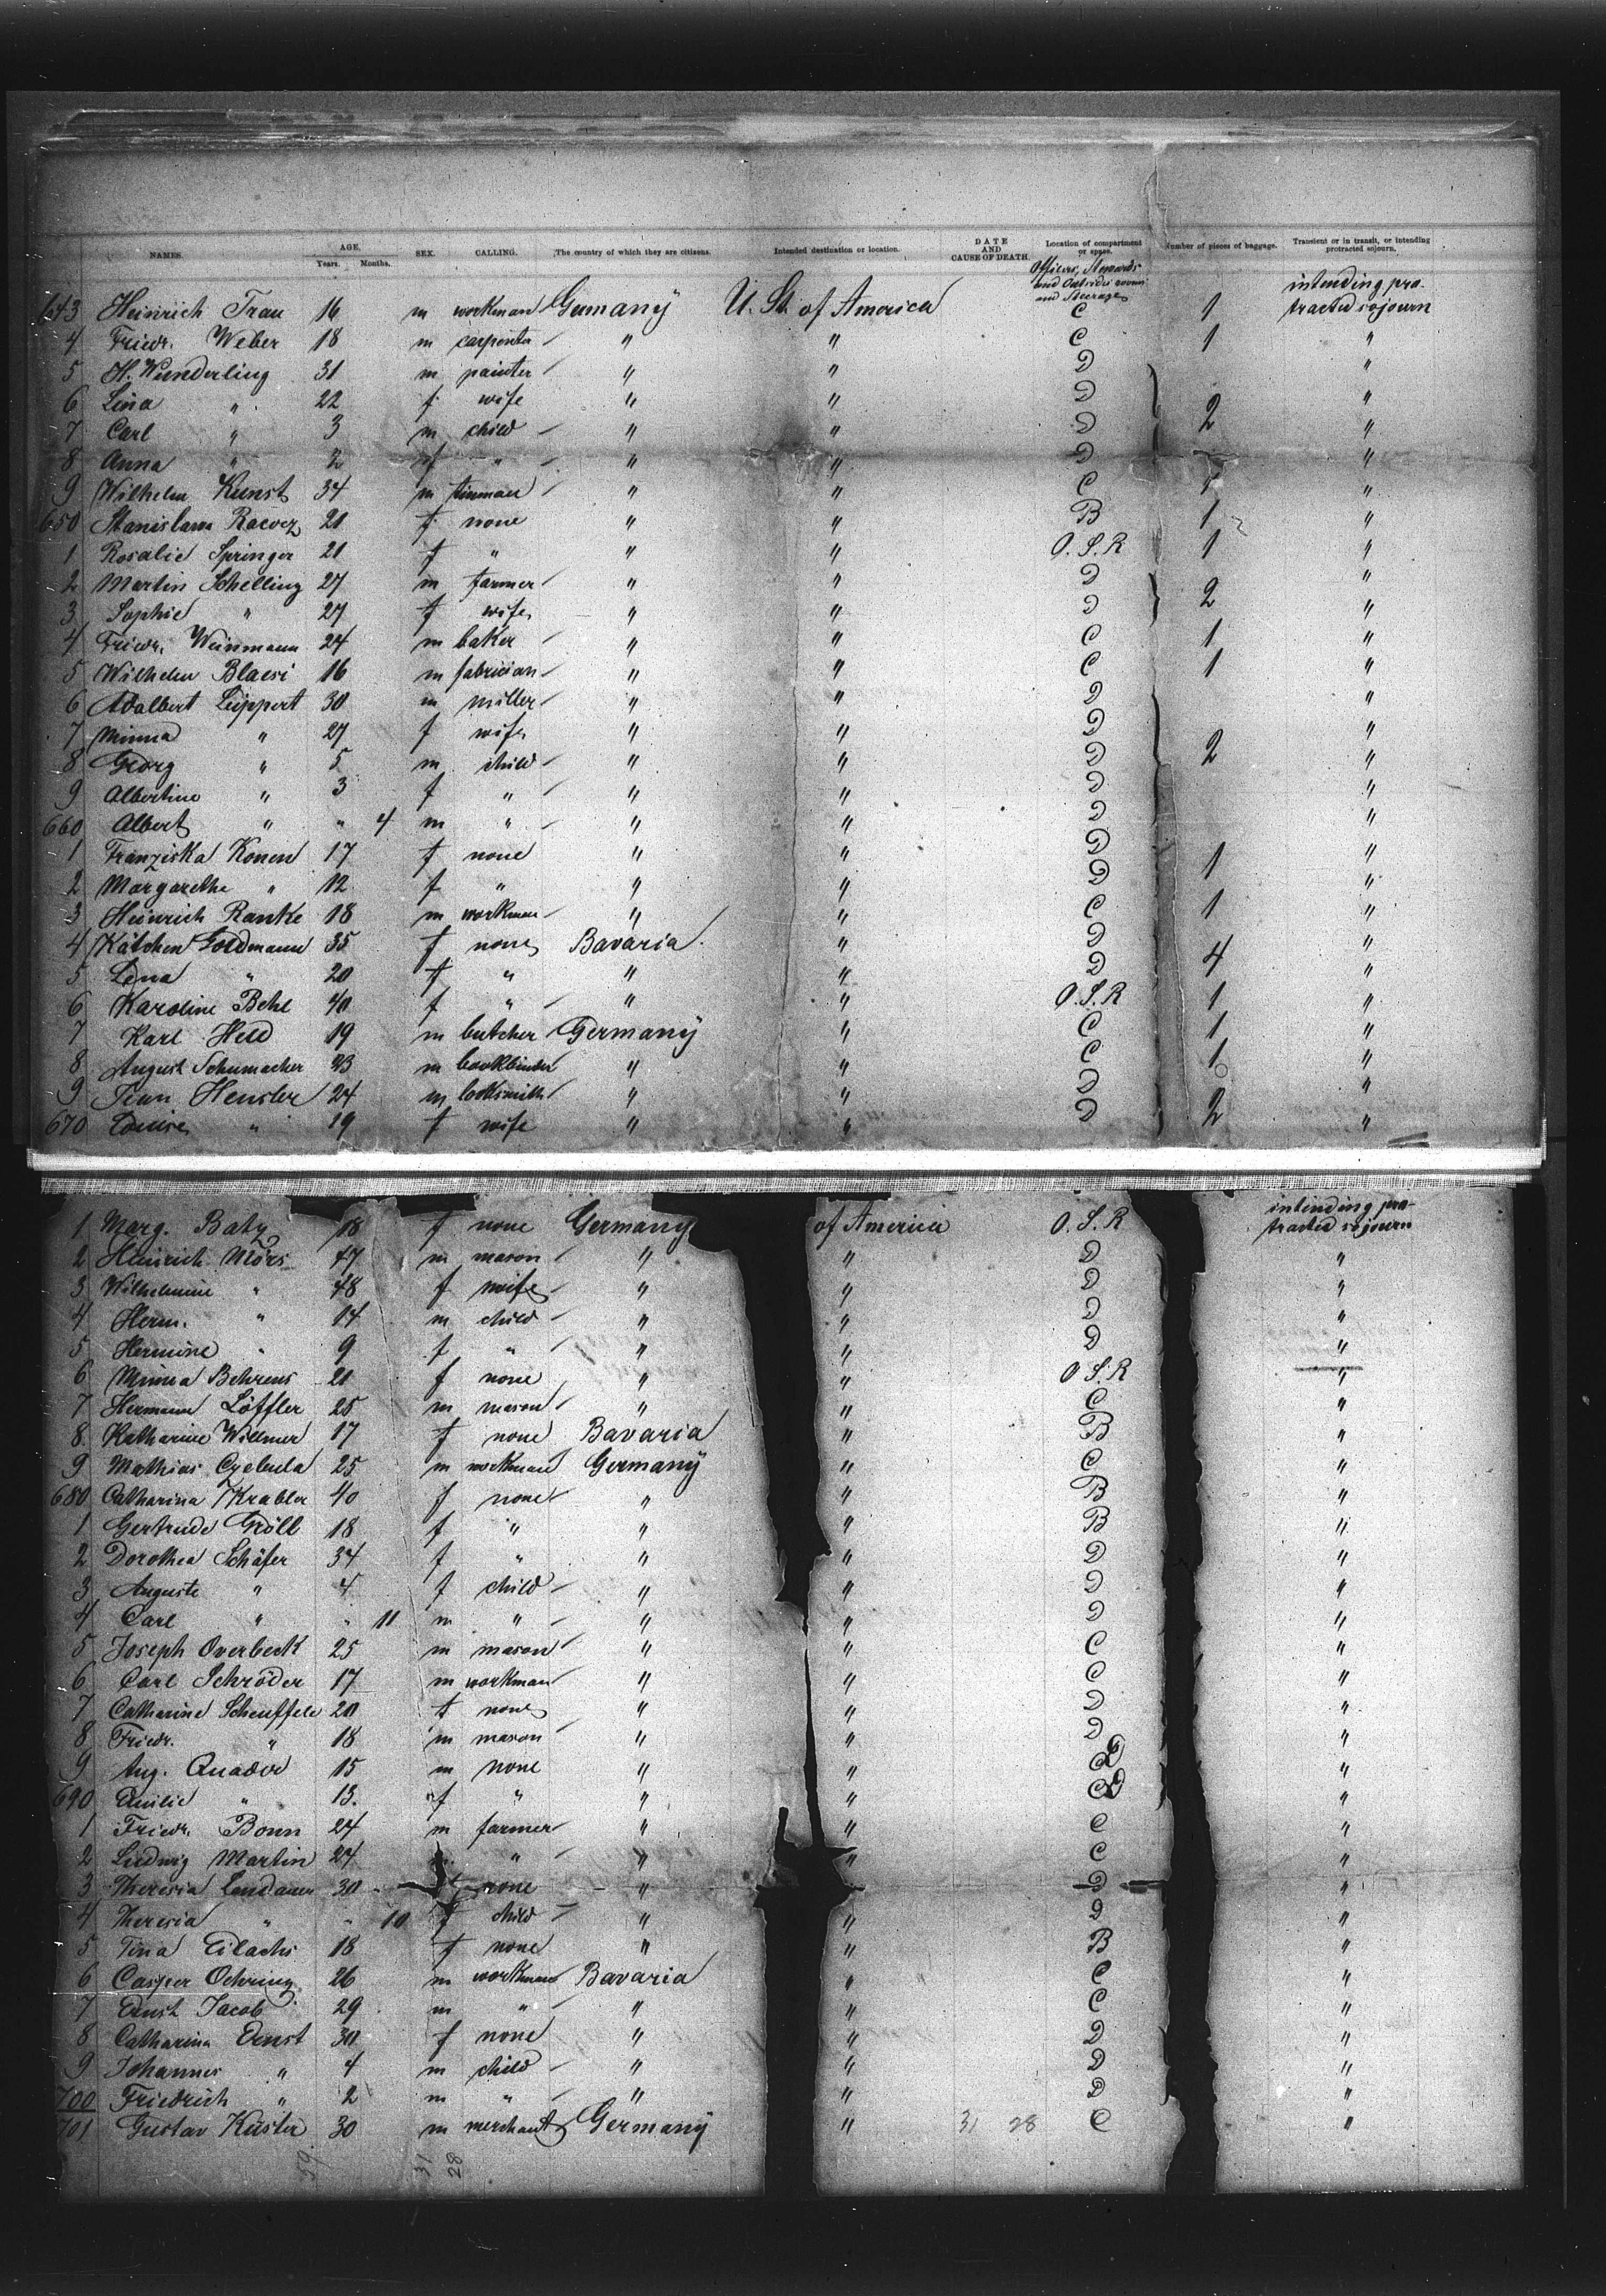 NAMES. AGE. Years. Months. SEX. CALLING. The country of which they are citizens. Intended destination or location. DATE AND CAUSE OF DEATH. Location of compartment or space. Number of pieces of baggage. Transient or in transit, or intending protracted sojourn.
Officers, Stewards and Outsides rooms and Steerage
643 Heinrich Trau 16 m workman Germany U. St. of America C 1 intending protracted sojourn
4 Friedr. Weber 18 m carpenter " " C 1 "
5 H. Wunderling 31 m painter " " D "
6 Lina " 22 f wife " " D "
7 Carl " 3 m child " " D 2 "
8 Anna " 2 f " " " D "
9 Wilhelm Kunst 34 m tinman " " C 1 "
650 Stanislawa 21 f none " " B 1 "
1 Rosalie Springer 21 f " " " O.S.R 1 "
2 Martin Schelling 27 m farmer " " D 2 "
3 Sophie " 27 f wife " " D "
4 Friedr. Weinmann 24 m baker " " C 1 "
5 Wilhelm Blaesi 16 m fabrician " " C 1 "
6 Adalbert Leippert 30 m miller " " D "
7 Minna " 27 f wife " " D "
8 Georg " 5 m child " " D 2 "
9 Albertine " 3 f " " " D "
660 Albert " " 4 m " " " D "
1 Franziska Konen 17 f none " " D 1 "
2 Margarethe " 12 f " " " D "
3 Heinrich Ranke 18 m workman " " C 1 "
4 Kätchen Goldmann 35 f none Bavaria " D 4 "
5 Lena " 20 f " " " D "
6 Karoline Behl 40 f " " " O.S.R 1 "
7 Karl Held 19 m butcher Germany " C 1 "
8 August Schumacher 23 m bookbinder " " C 1 "
9 Hensler 24 m locksmith " " D "
670 Louise " 19 f wife " " D 2 "
1 Marg. Batz 18 f none Germany of America O.S.R intending protracted sojourn
2 Heinrich Mörs 47 m mason " " D "
3 Wilhelmine " 48 f wife " " D "
4 Herm. " 14 m child " " D "
5 Hermine " 9 f " " " D "
6 Minna Behrens 21 f none " " O.S.R "
7 Hermann Löffler 25 m mason " " C "
8 Katharine Willmer 17 f none Bavaria " B "
9 Mathias Cyebula 25 m workman Germany " C "
680 Catharina Krabler 40 f none " " B "
1 Gertrude Gröll 18 f " " " B "
2 Dorothea Schäfer 34 f " " " D "
3 Auguste " 4 f child " " D "
4 Carl " " 11 m " " " D "
5 Joseph Overbeck 25 m mason " " C "
6 Carl Schröder 17 m workman " " C "
7 Catharine Scheuffele 20 f none " " D "
8 Friedr. " 18 m mason " " D "
9 Aug. Quador 15 m none " " D "
690 Emilie " 13 f " " " D "
1 Friedr. Bonn 24 m farmer " " C "
2 Ludwig Martin 24 " " " C "
3 Theresia Landauer 30 f none " " D "
4 Theresia " " 10 f child " " D "
5 Tina Eilachs 18 f none " " B "
6 Casper Oehring 26 m workman Bavaria " C "
7 Ernst Jacob 29 m " " " C "
8 Catharina Ernst 30 f none " " D "
9 Johannes " 4 m child " " D "
700 Friedrich " 2 m " " " D "
701 Gustav Küster 30 m merchant Germany " 31 28 C "
59 31 28